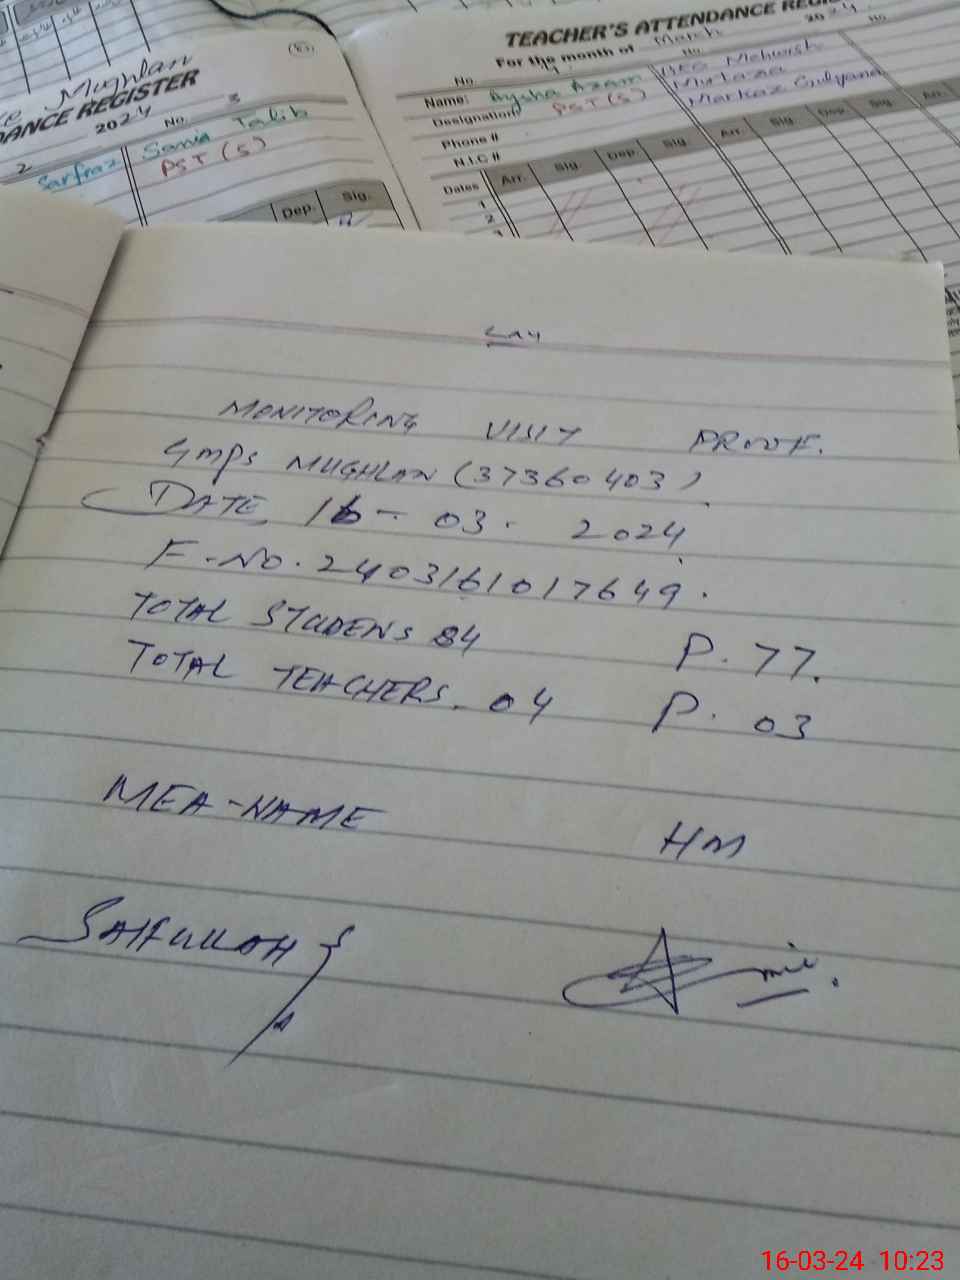 Mughlan
DANCE REGISTER
2024 No. 3
2
Sarfraz
Samia Talib
PST (S)
Dep. Sig.
TEACHER'S ATTENDANCE REGI
For the month of March 2024
No. 4 No. No.
Name: Aysha Azam
Designation PST (S)
Phone #
N.I.C #
Mehwish
Murtaza
Markaz Gulyana
Dates Arr. Sig. Dep. Sig. Arr. Sig. Dep. Sig. Arr.
1
2
MONITORING VISIT PROOF.
GMPS MUGHLAN (37360403).
DATE, 16-03-2024
F-No. 2403161017649.
TOTAL STUDENS 84 P. 77.
TOTAL TEACHERS. 04 P. 03
MEA-NAME HM
SAIFULLAH
16-03-24 10:23